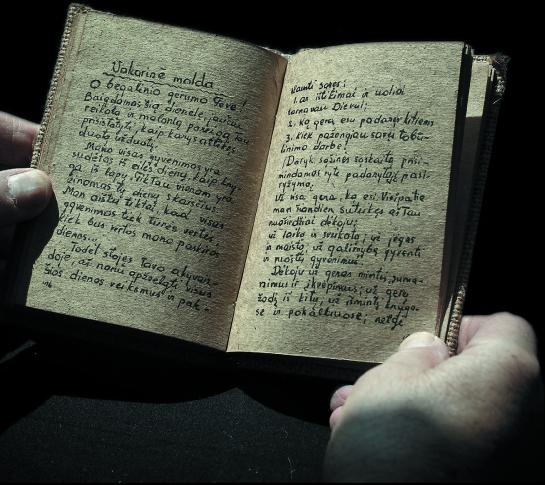 Vakarinė malda
O begalinio gerumo Tėve!
Baigdamas šią dienelę, jaučiu
reikalą ir malonią pareigą Tau
prisistatyti, kaip karys atlikęs
duotą
Mano visas gyvenimas yra
sudėtas iš eilės dienų kaip kny-
ga iš lapų. Tik Tau vienam yra
žinomas tų dienų skaičius.
Man aišku tiktai, kad visas
gyvenimas tiek turės vertės,
kiek bus vertos mano paskiros
dienos...
Todėl stojęs Tavo akyvaiz-
doje, aš noriu apžvelgti visus
šios dienos veiksmus ir pak-
savęs:
1. ar ištikimai ir uoliai
tarnavau Dievui;
2. ką gera esu padaręs kitiems
3. kiek pažengiau savo tobu-
linimo darbe!
(Daryk sąžinės sąskaitą prisi-
mindamas ryte padarytąjį pasi-
ryžimą.
Už visa gera, ką esi Viešpatie
man šiandien suteikęs aš Tau
nuoširdžiai dėkoju;
už laiką ir sveikatą; už jėgas
ir maistą; už galimybę gyventi
ir ruoštą gyvenimui.
Dėkoju už geras mintis, suma-
nimus ir įkvėpimus; už gerą
žodį iš kitų; už rimintį knygo-
se ir pokalbiuose; netgi